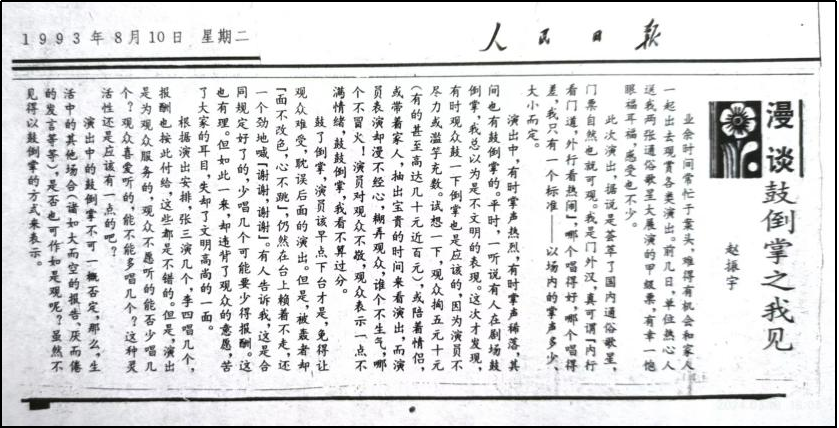 1993年8月10日 星期二
人民日报
漫谈鼓倒掌之我见
赵振宇
业余时间常忙于案头，难得有机会和家人
一起出去观赏各类演出。前几日，单位热心人
送我两张通俗歌星大展演的甲级票，有幸一饱
眼福耳福，感受也不少。
此次演出，据说是荟萃了国内通俗歌星，
门票自然也就可观。我是门外汉，真可谓“内行
看门道，外行看热闹”，哪个唱得好，哪个唱得
差，我只有一个标准——以场内的掌声多少、
大小而定。
演出中，有时掌声热烈，有时掌声稀落，其
间也有鼓倒掌的。平时，一听说有人在剧场鼓
倒掌，我总以为是不文明的表现。这次才发现，
有时观众鼓一下倒掌也是应该的，因为演员不
尽力或滥竽充数。试想一下，观众掏五元十元
（有的甚至高达几十元近百元），或陪着情侣，
或带着家人，抽出宝贵的时间来看演出，而演
员表演却漫不经心，糊弄观众，谁个不生气，哪
个不冒火！演员对观众不敬，观众表示一点不
满情绪，鼓鼓倒掌，我看不算过分。
鼓了倒掌，演员该早点下台才是，免得让
观众难受，耽误后面的演出。但是，被轰者却
“面不改色，心不跳”，仍然在台上赖着不走，还
一个劲地喊“谢谢，谢谢”。有人告诉我，这是合
同规定好了的，少唱几个可能要少得报酬。这
也有理。但如此一来，却违背了观众的意愿，苦
了大家的耳目，失却了文明高尚的一面。
根据演出安排，张三演几个，李四唱几个，
报酬也按此付给，这些都是不错的。但是，演出
是为观众服务的，观众不愿听的能否少唱几
个？观众喜爱听的，能不能多唱几个？这种灵
活性还是应该有一点的吧？
演出中的鼓倒掌不可一概否定，那么，生
活中的其他场合（诸如大而空的报告、厌而倦
的发言等等），是否也可作如是观呢？虽然不
见得以鼓倒掌的方式来表示。